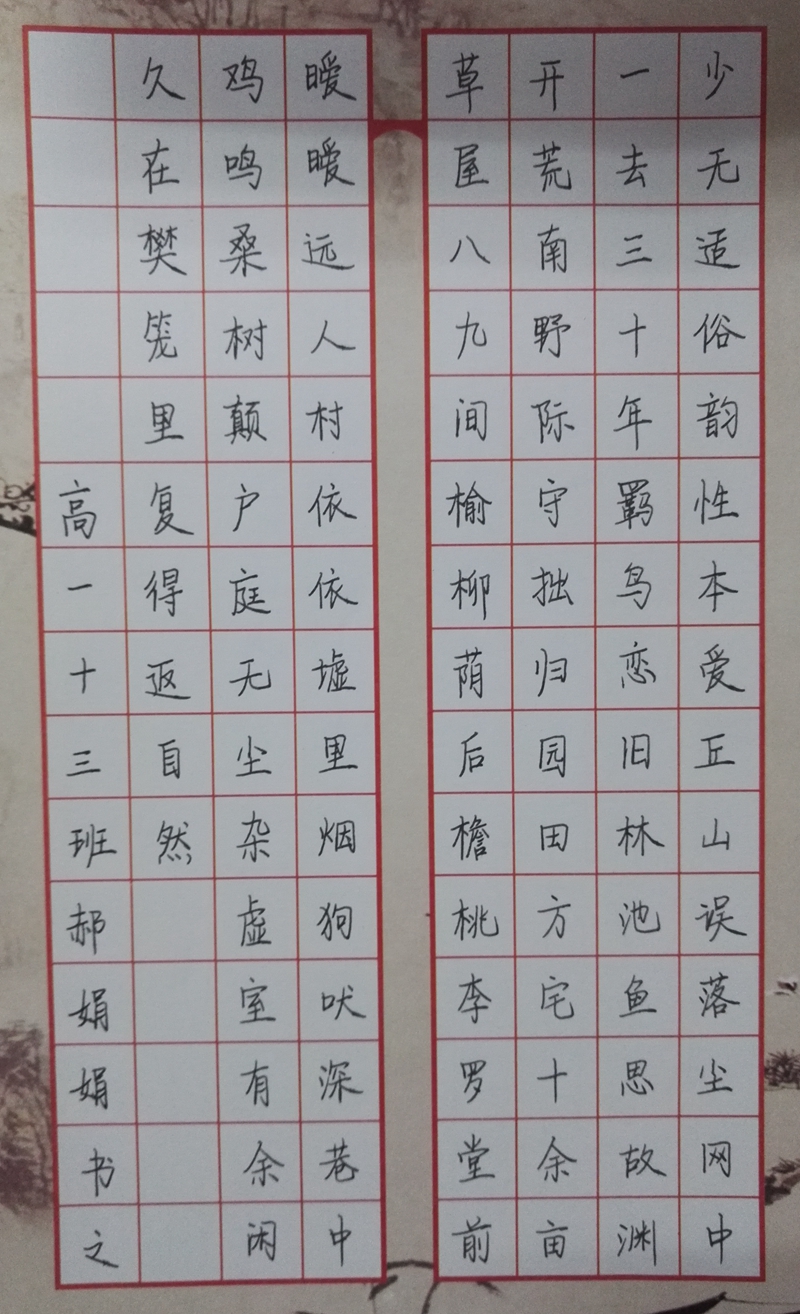 少无适俗韵性本爱丘山误落尘网中
一去三十年羁鸟恋旧林池鱼思故渊
开荒南野际守拙归园田方宅十余亩
草屋八九间榆柳荫后檐桃李罗堂前
暧暧远人村依依墟里烟狗吠深巷中
鸡鸣桑树颠户庭无尘杂虚室有余闲
久在樊笼里复得返自然
高一十三班郝娟娟书之